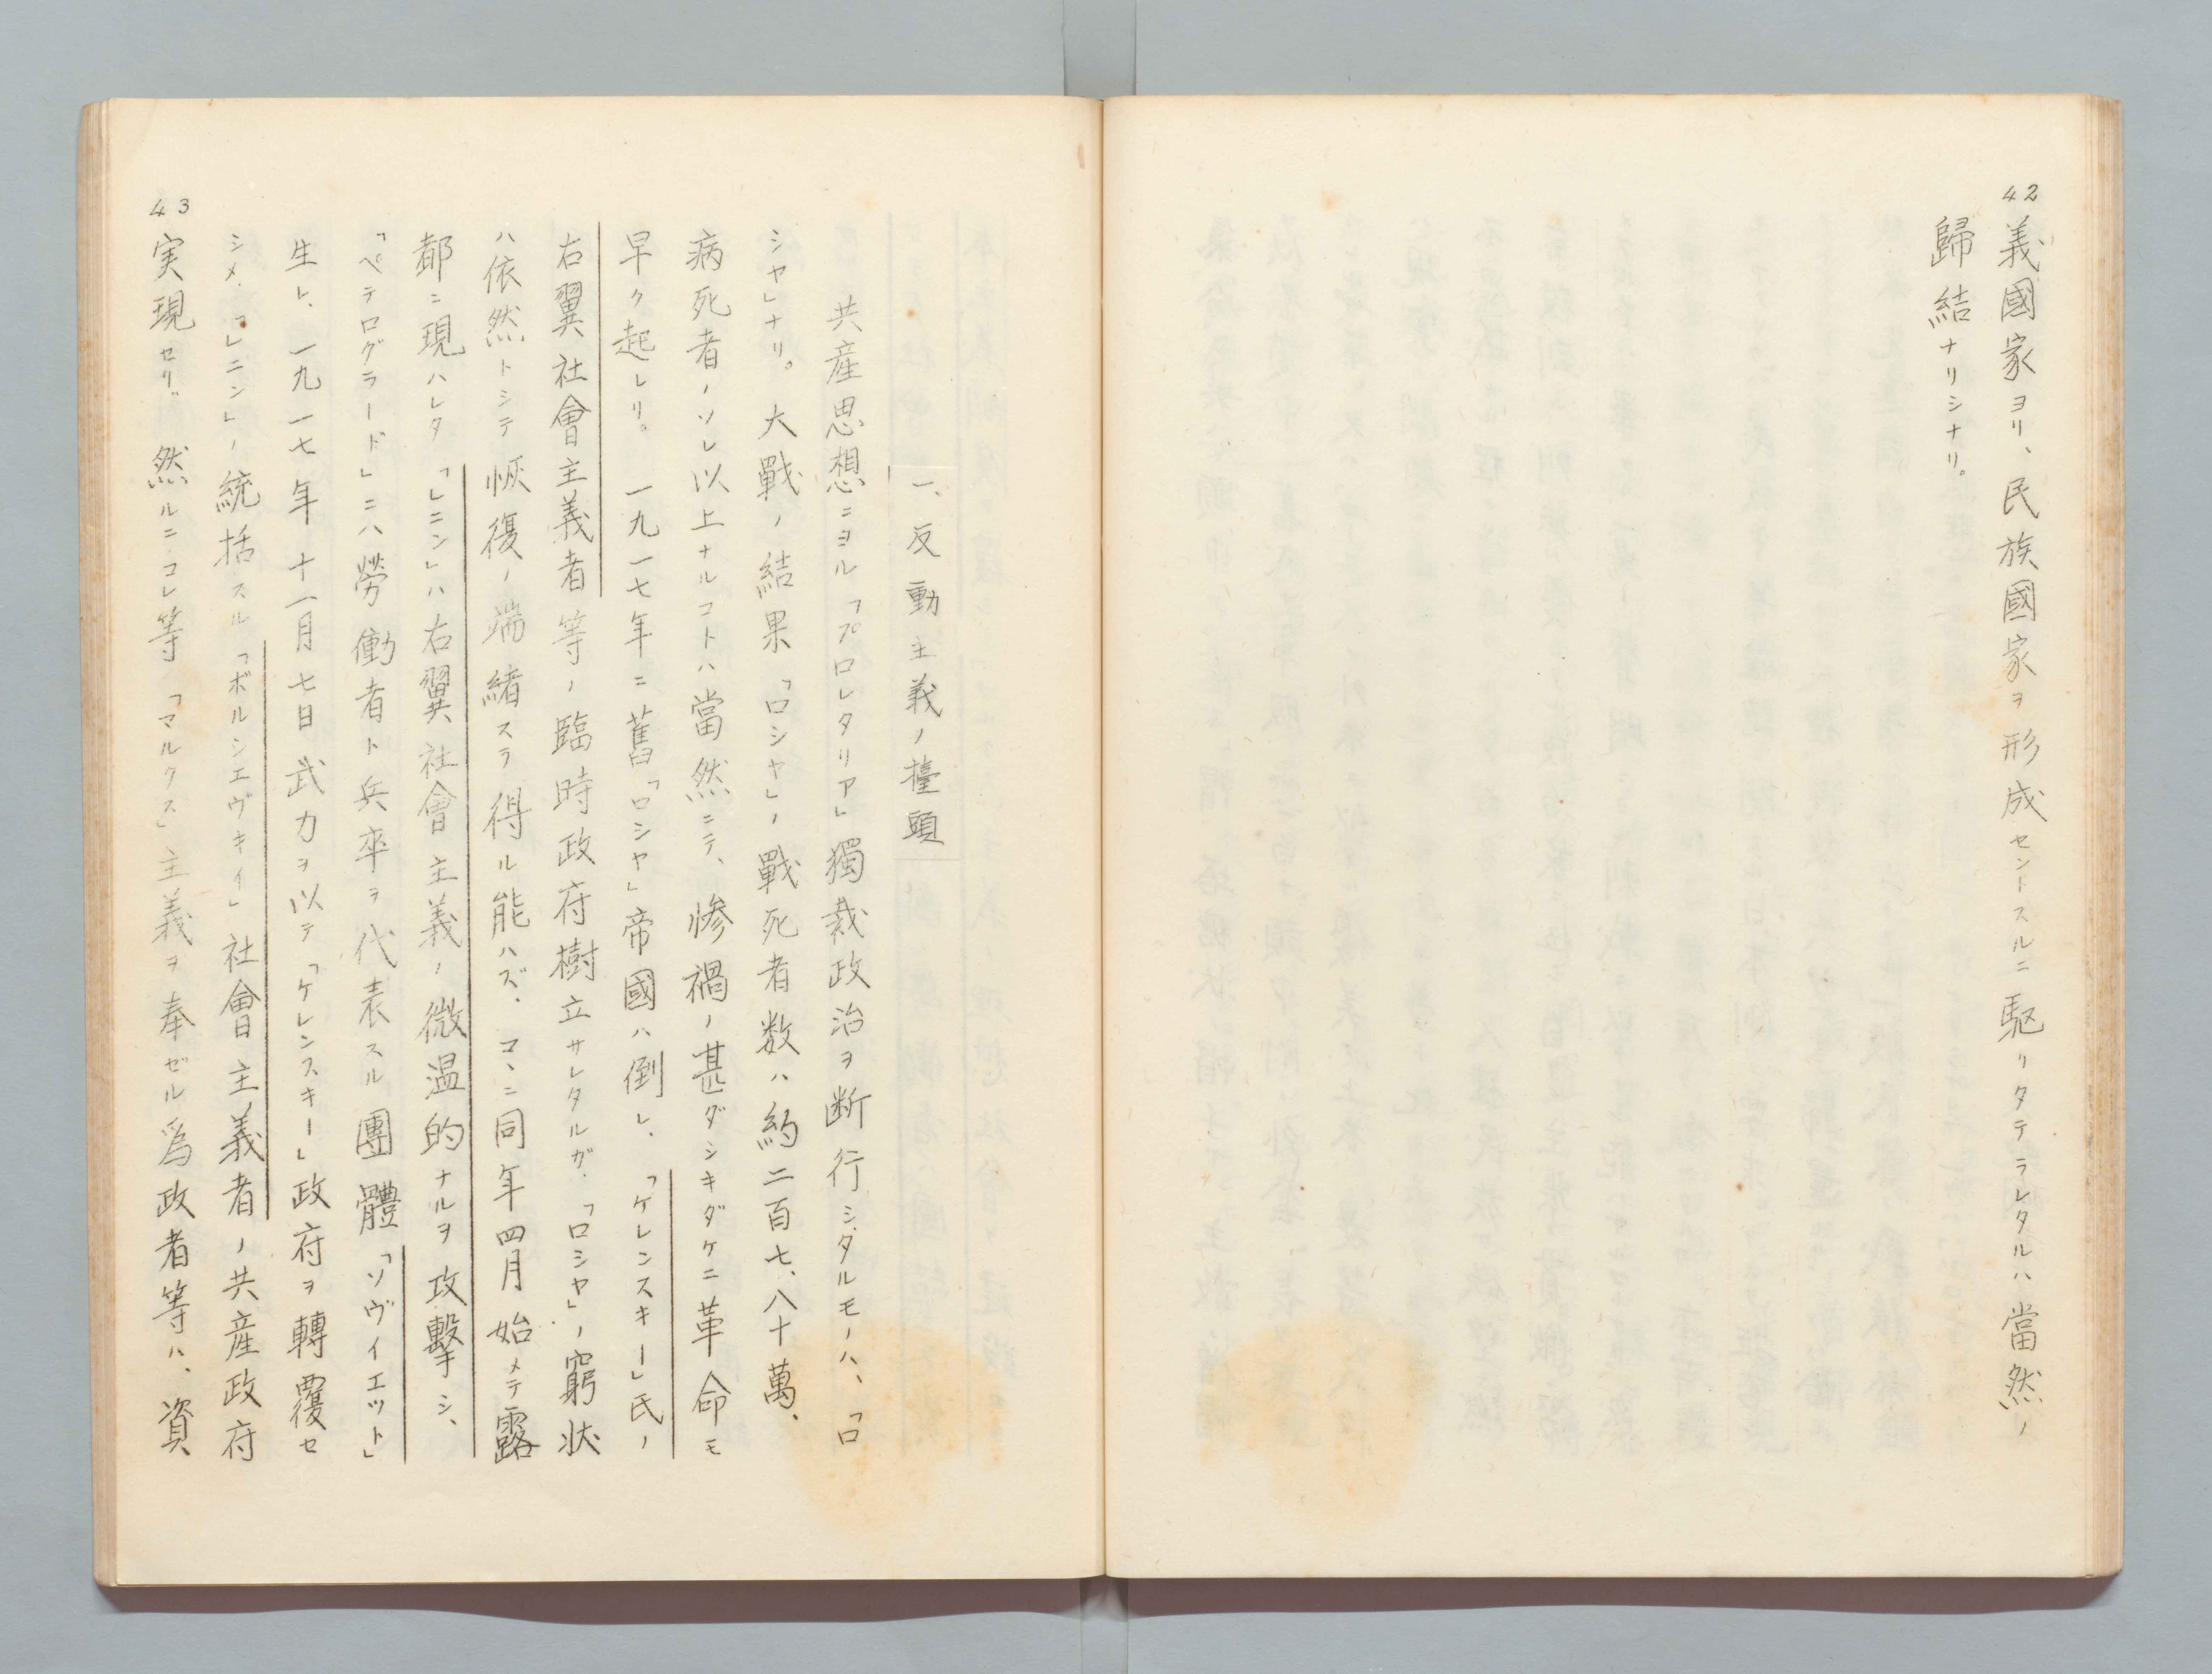 42
義國家ヨリ、民族國家ヲ形成セントスルニ駆リタテラレタルハ當然ノ
歸結ナリシナリ。
一、反動主義ノ擡頭
共産思想ニヨル「プロレタリア」獨裁政治ヲ断行シタルモノハ、「ロ
シヤ」ナリ。大戰ノ結果「ロシヤ」ノ戰死者数ハ約二百七、八十萬、
病死者ノソレ以上ナルコトハ當然ニテ、惨禍ノ甚ダシキダケニ革命モ
早ク起レリ。一九一七年ニ舊「ロシヤ」帝國ハ倒レ、「ケレンスキー」氏ノ
右翼社會主義者等ノ臨時政府樹立サレタルガ、「ロシヤ」ノ窮状
ハ依然トシテ恢復ノ端緒スラ得ル能ハズ、コヽニ同年四月始メテ露
都ニ現ハレタ「レニン」ハ右翼社會主義ノ微温的ナルヲ攻擊シ、
「ペテログラード」ニハ勞働者ト兵卒ヲ代表スル團體「ソヴイエツト」
生レ、一九一七年十一月七日武力ヲ以テ「ケレンスキー」政府ヲ轉覆セ
シメ、「レニン」ノ統括スル「ボルシエヴキイ」社會主義者ノ共産政府
43
実現セリ。然ルニコレ等「マルクス」主義ヲ奉ゼル爲政者等ハ、資